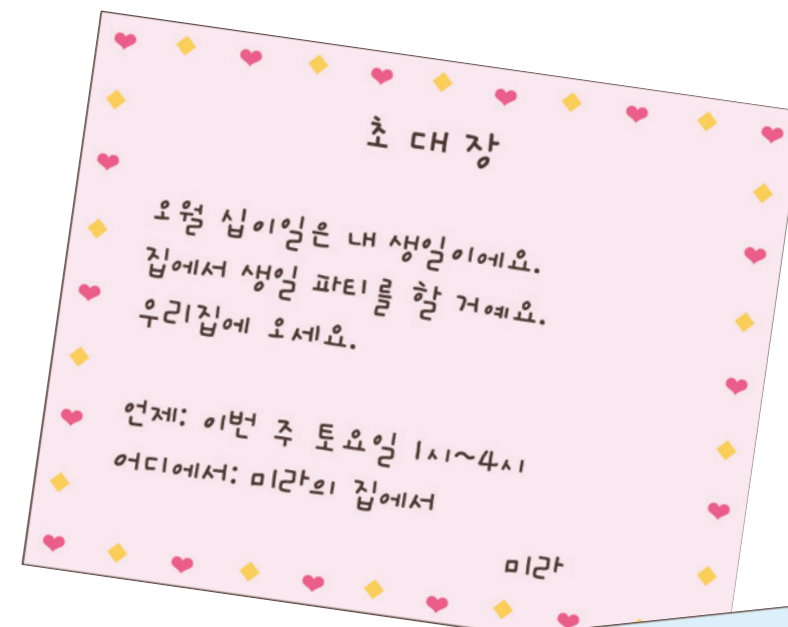 초대장
오월 십이일은 내 생일이에요.
집에서 생일 파티를 할 거예요.
우리집에 오세요.
언제: 이번 주 토요일 1시~4시
어디에서: 미라의 집에서
미라